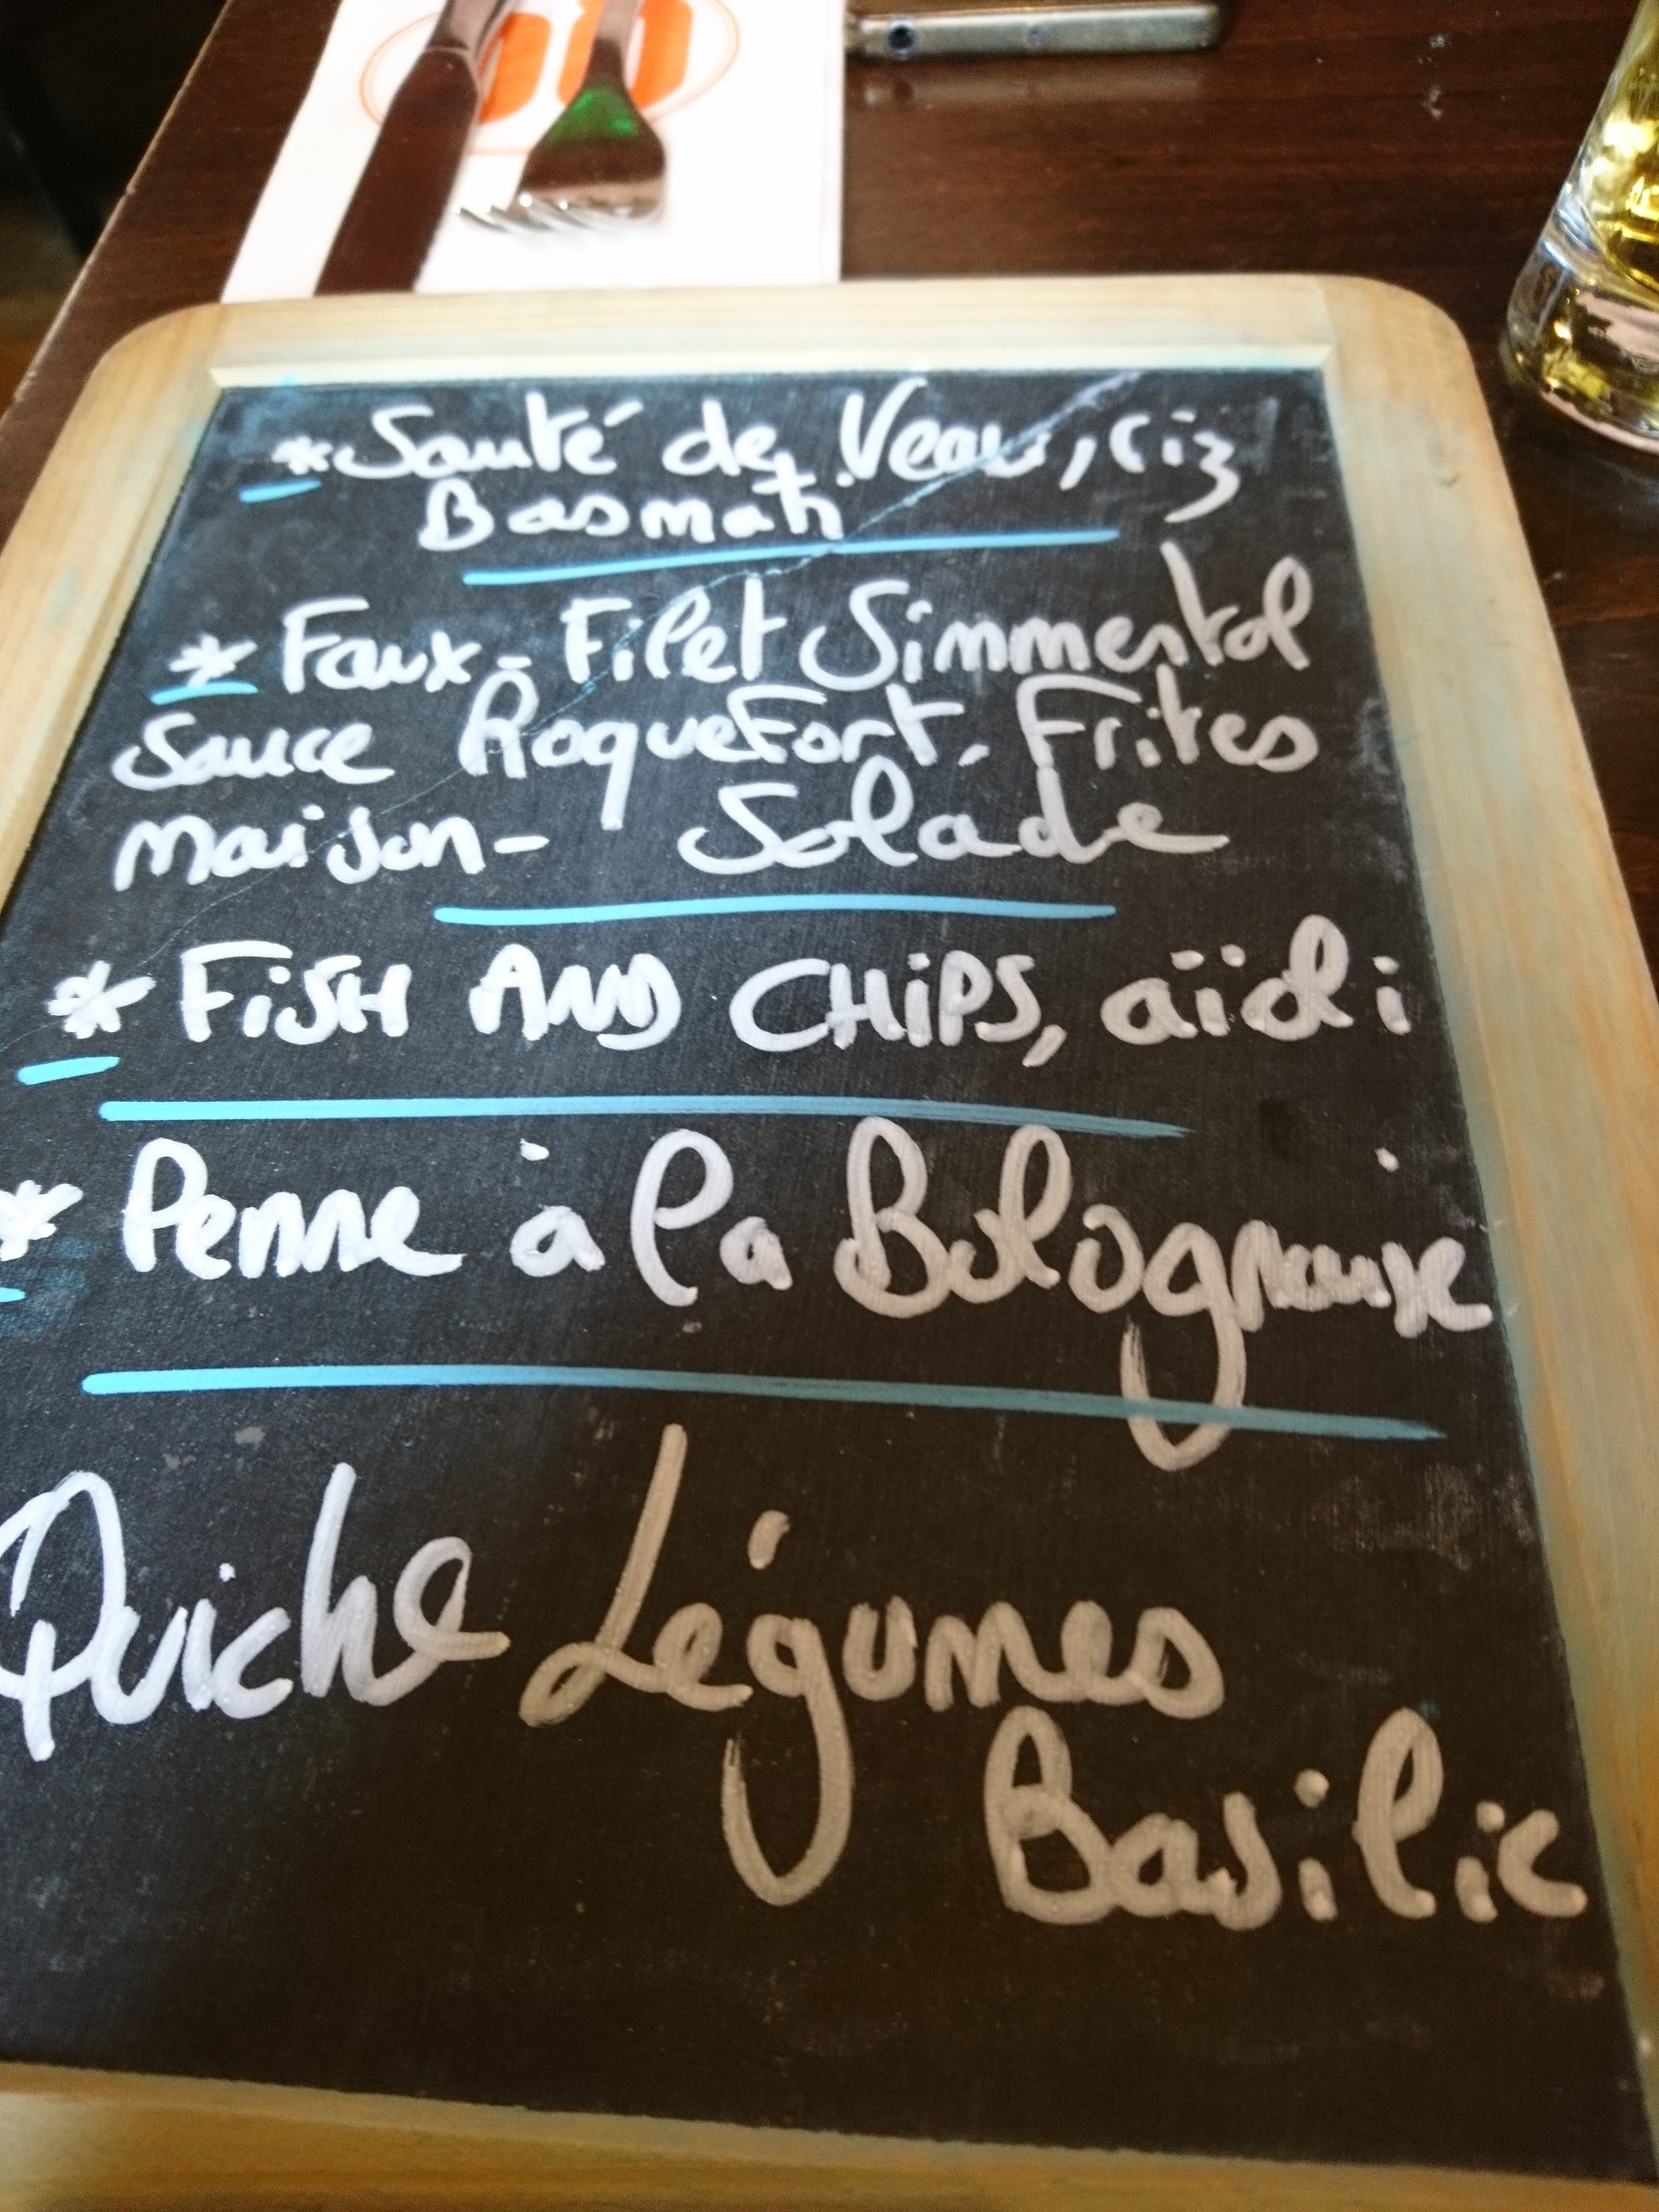 * Sauté de Veau, riz
Basmati
* Faux-Filet Simmental
Sauce Roquefort, Frites
maison- Salade
* FiSH AND CHiPS, aïoli
* Penne à la Bolognaise
Quiche Légumes
Basilic